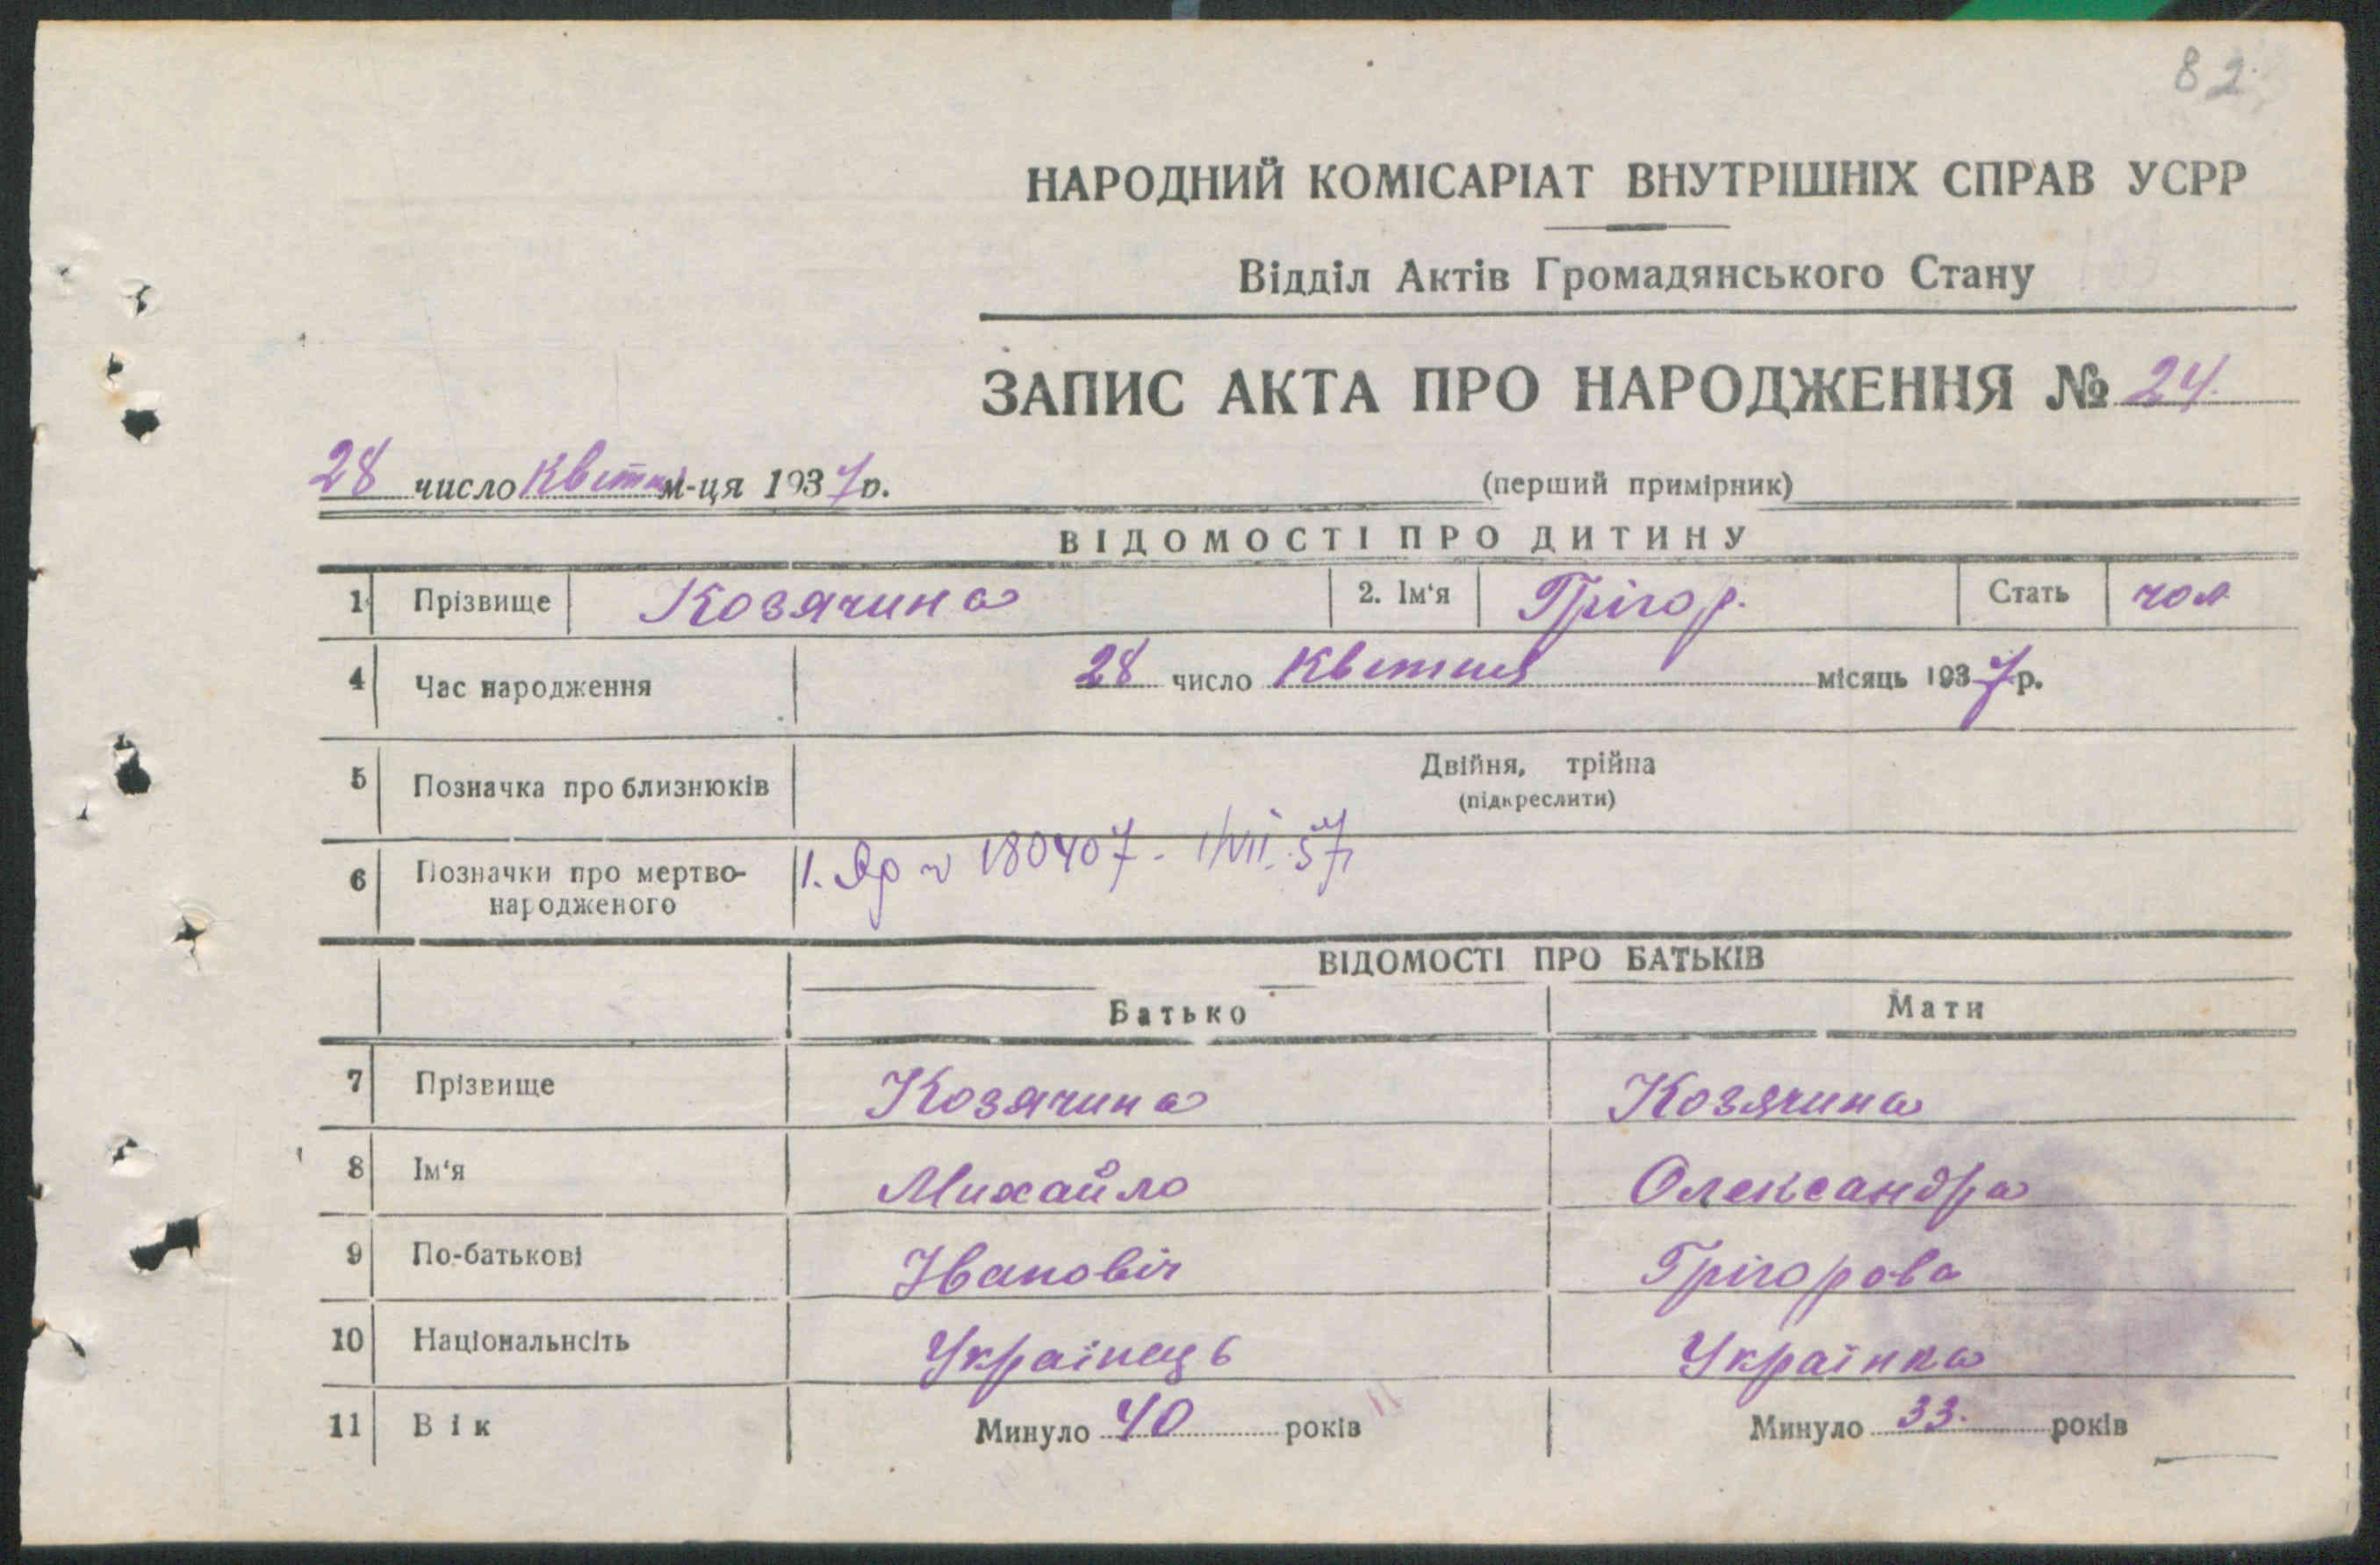 82.
НАРОДНИЙ КОМІСАРІАТ ВНУТРІШНІХ СПРАВ УСРР
Відділ Актів Громадянського Стану
ЗАПИС АКТА ПРО НАРОДЖЕННЯ № 24.
28 число Квітн м-ця 1937 р.
(перший примірник)
ВІДОМОСТІ ПРО ДИТИНУ
1 Прізвище Козячина 2. Ім'я Грігор. Стать чол
4 Час народження 28 число Квітня місяць 1937 р.
5 Позначка про близнюків Двійня, трійна
(підкреслити)
6 Позначки про мертво- 180407 - 1/VII.57
народженого
ВІДОМОСТІ ПРО БАТЬКІВ
Батько Мати
7 Прізвище Козячина Козячина
8 Ім'я Михайло Олександра
9 По-батькові Івановіч Грігорова
10 Національнсіть Українець Українка
11 Вік Минуло 40 років Минуло 33. років